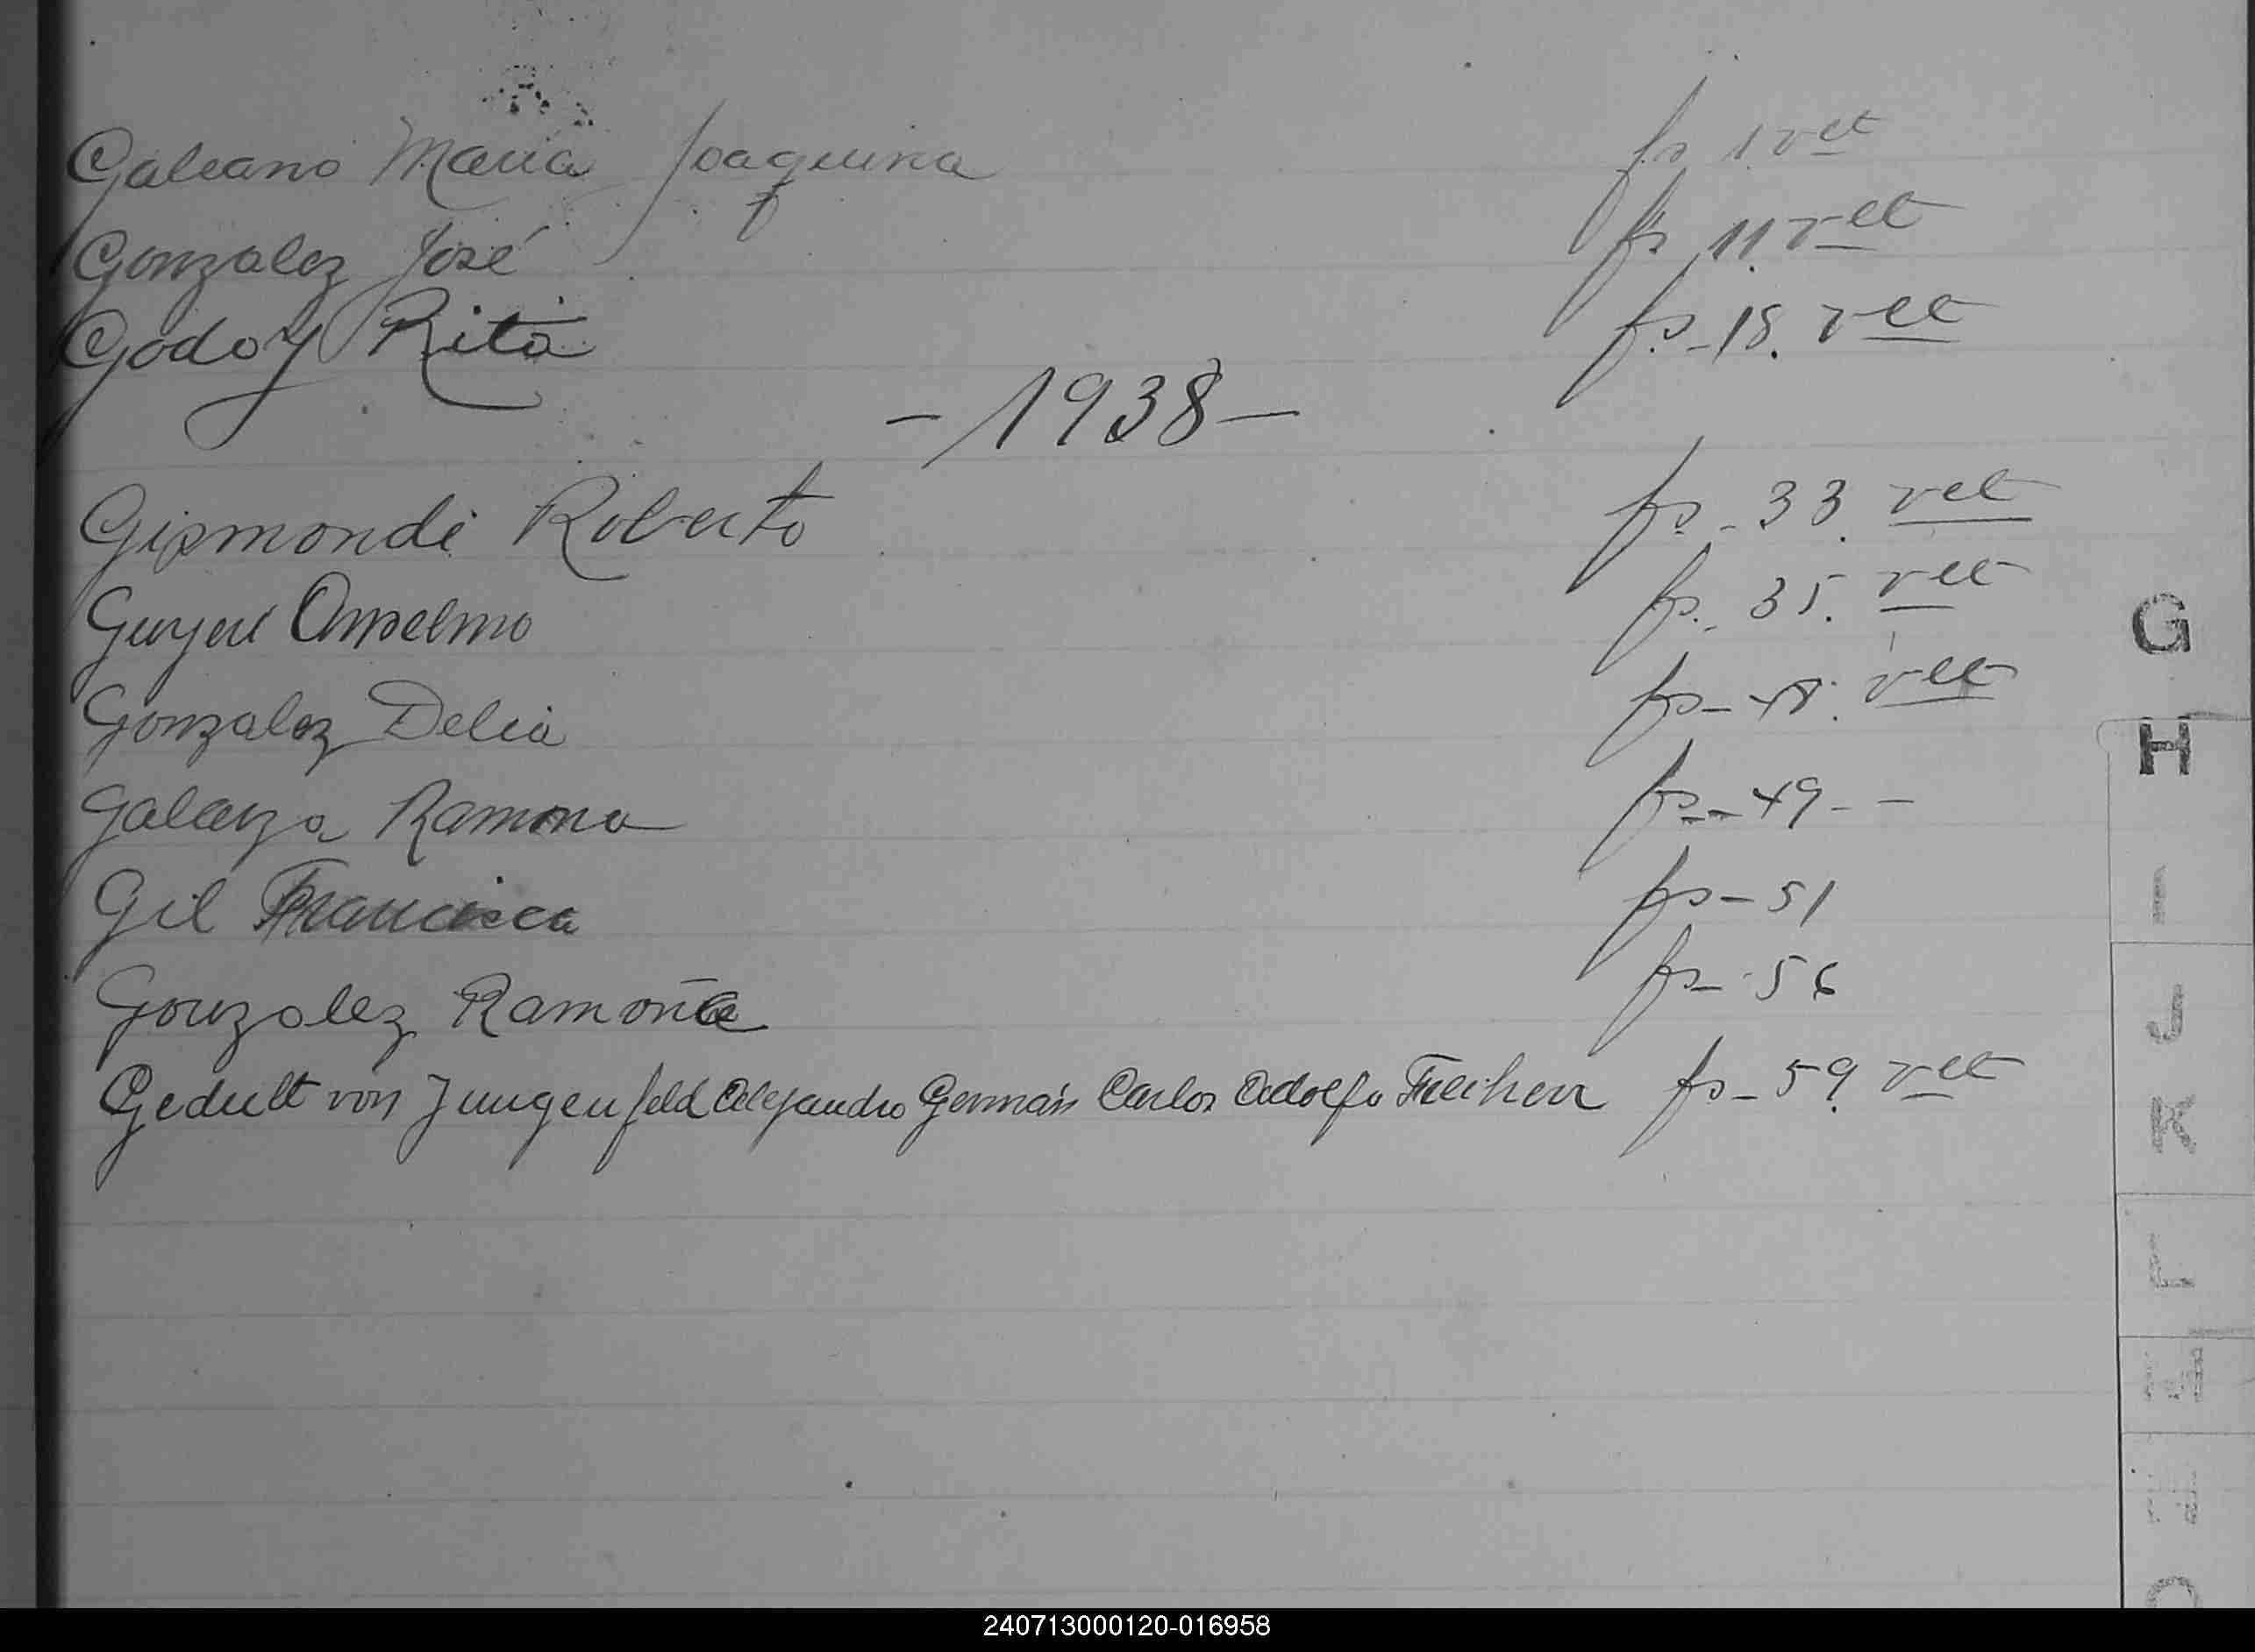 Galeano Maria Joaquina fs 1 vet
Gonzalez José fs 11 vet
Godoy Rita fs - 18. vet
- 1938 -
Gismondi Roberto fs - 33. vet
Anselmo fs. - 35. vet
Gonzalez Delia fs - 48. vet
Galarza Ramona fs - 49 - -
Gil Francisca fs - 51
Gonzalez Ramona fs - 56
Gedult von Jungenfeld Alejandro Germán Carlos Adolfo Freiherr fs - 59. vet
G
H
I
J
K
L
M
240713000120-016958